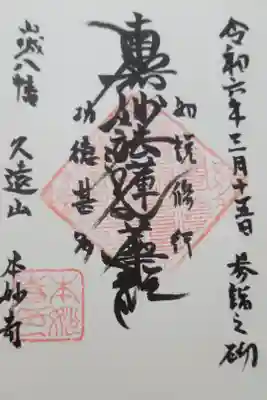 令和六年三月十五日 参詣之砌
如説修行
南無妙法蓮華経
功徳甚多
山城八幡 久遠山 本妙寺